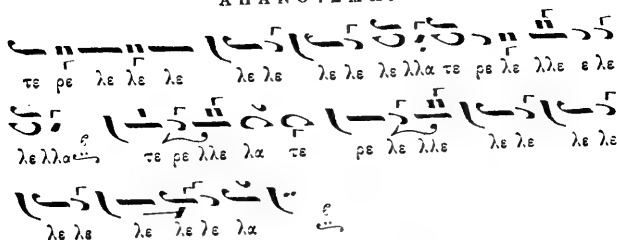 τε ρε λε λε λε λε λε λε λε λε λλα τε ρε λε λλε ε λε
λε λλα τε ρε λλε λα τε ρε λε λλε λε λε λε λε
λε λε λε λε λε λα